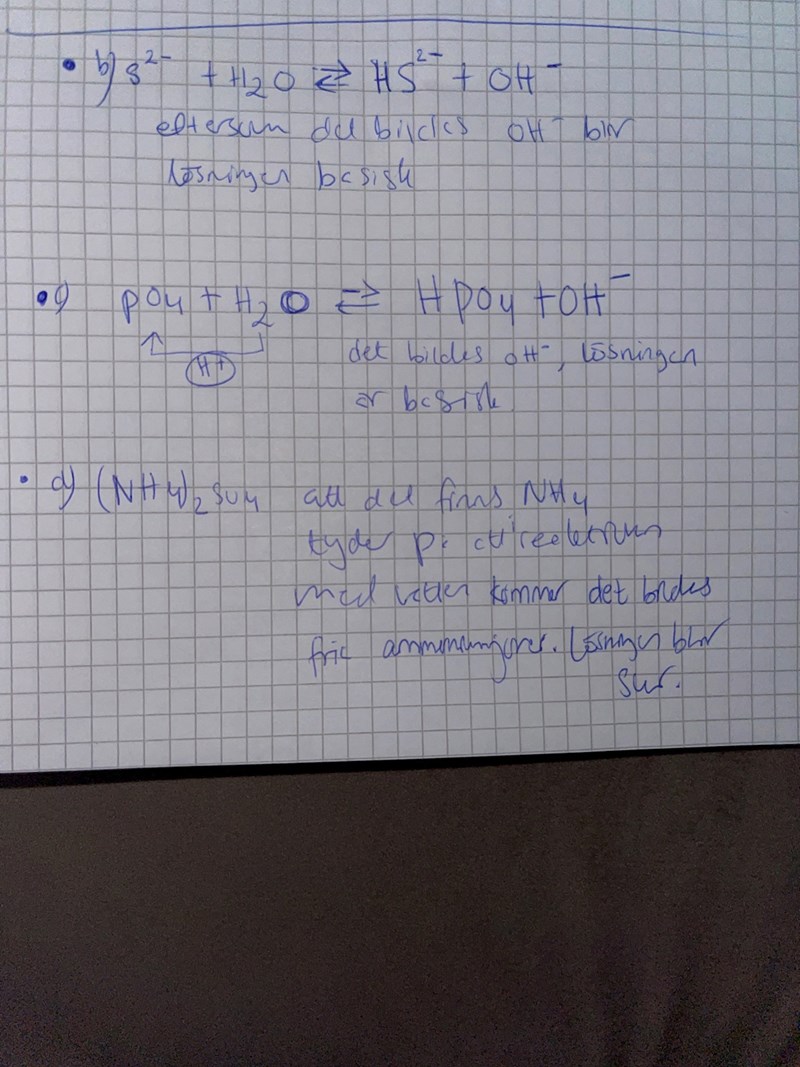 • b) S²⁻ + H₂O ⇄ HS²⁻ + OH⁻
eftersom det bildes OH⁻ blir
lösningen basisk
• c) PO4 + H₂O ⇄ HPO4 + OH⁻
H+
det bildes OH⁻, lösningen
är basisk
• d) (NH4)₂SO4 att det finns NH4
tyder på att
med vatten kommer det bildes
fria Lösningen blir
sur.